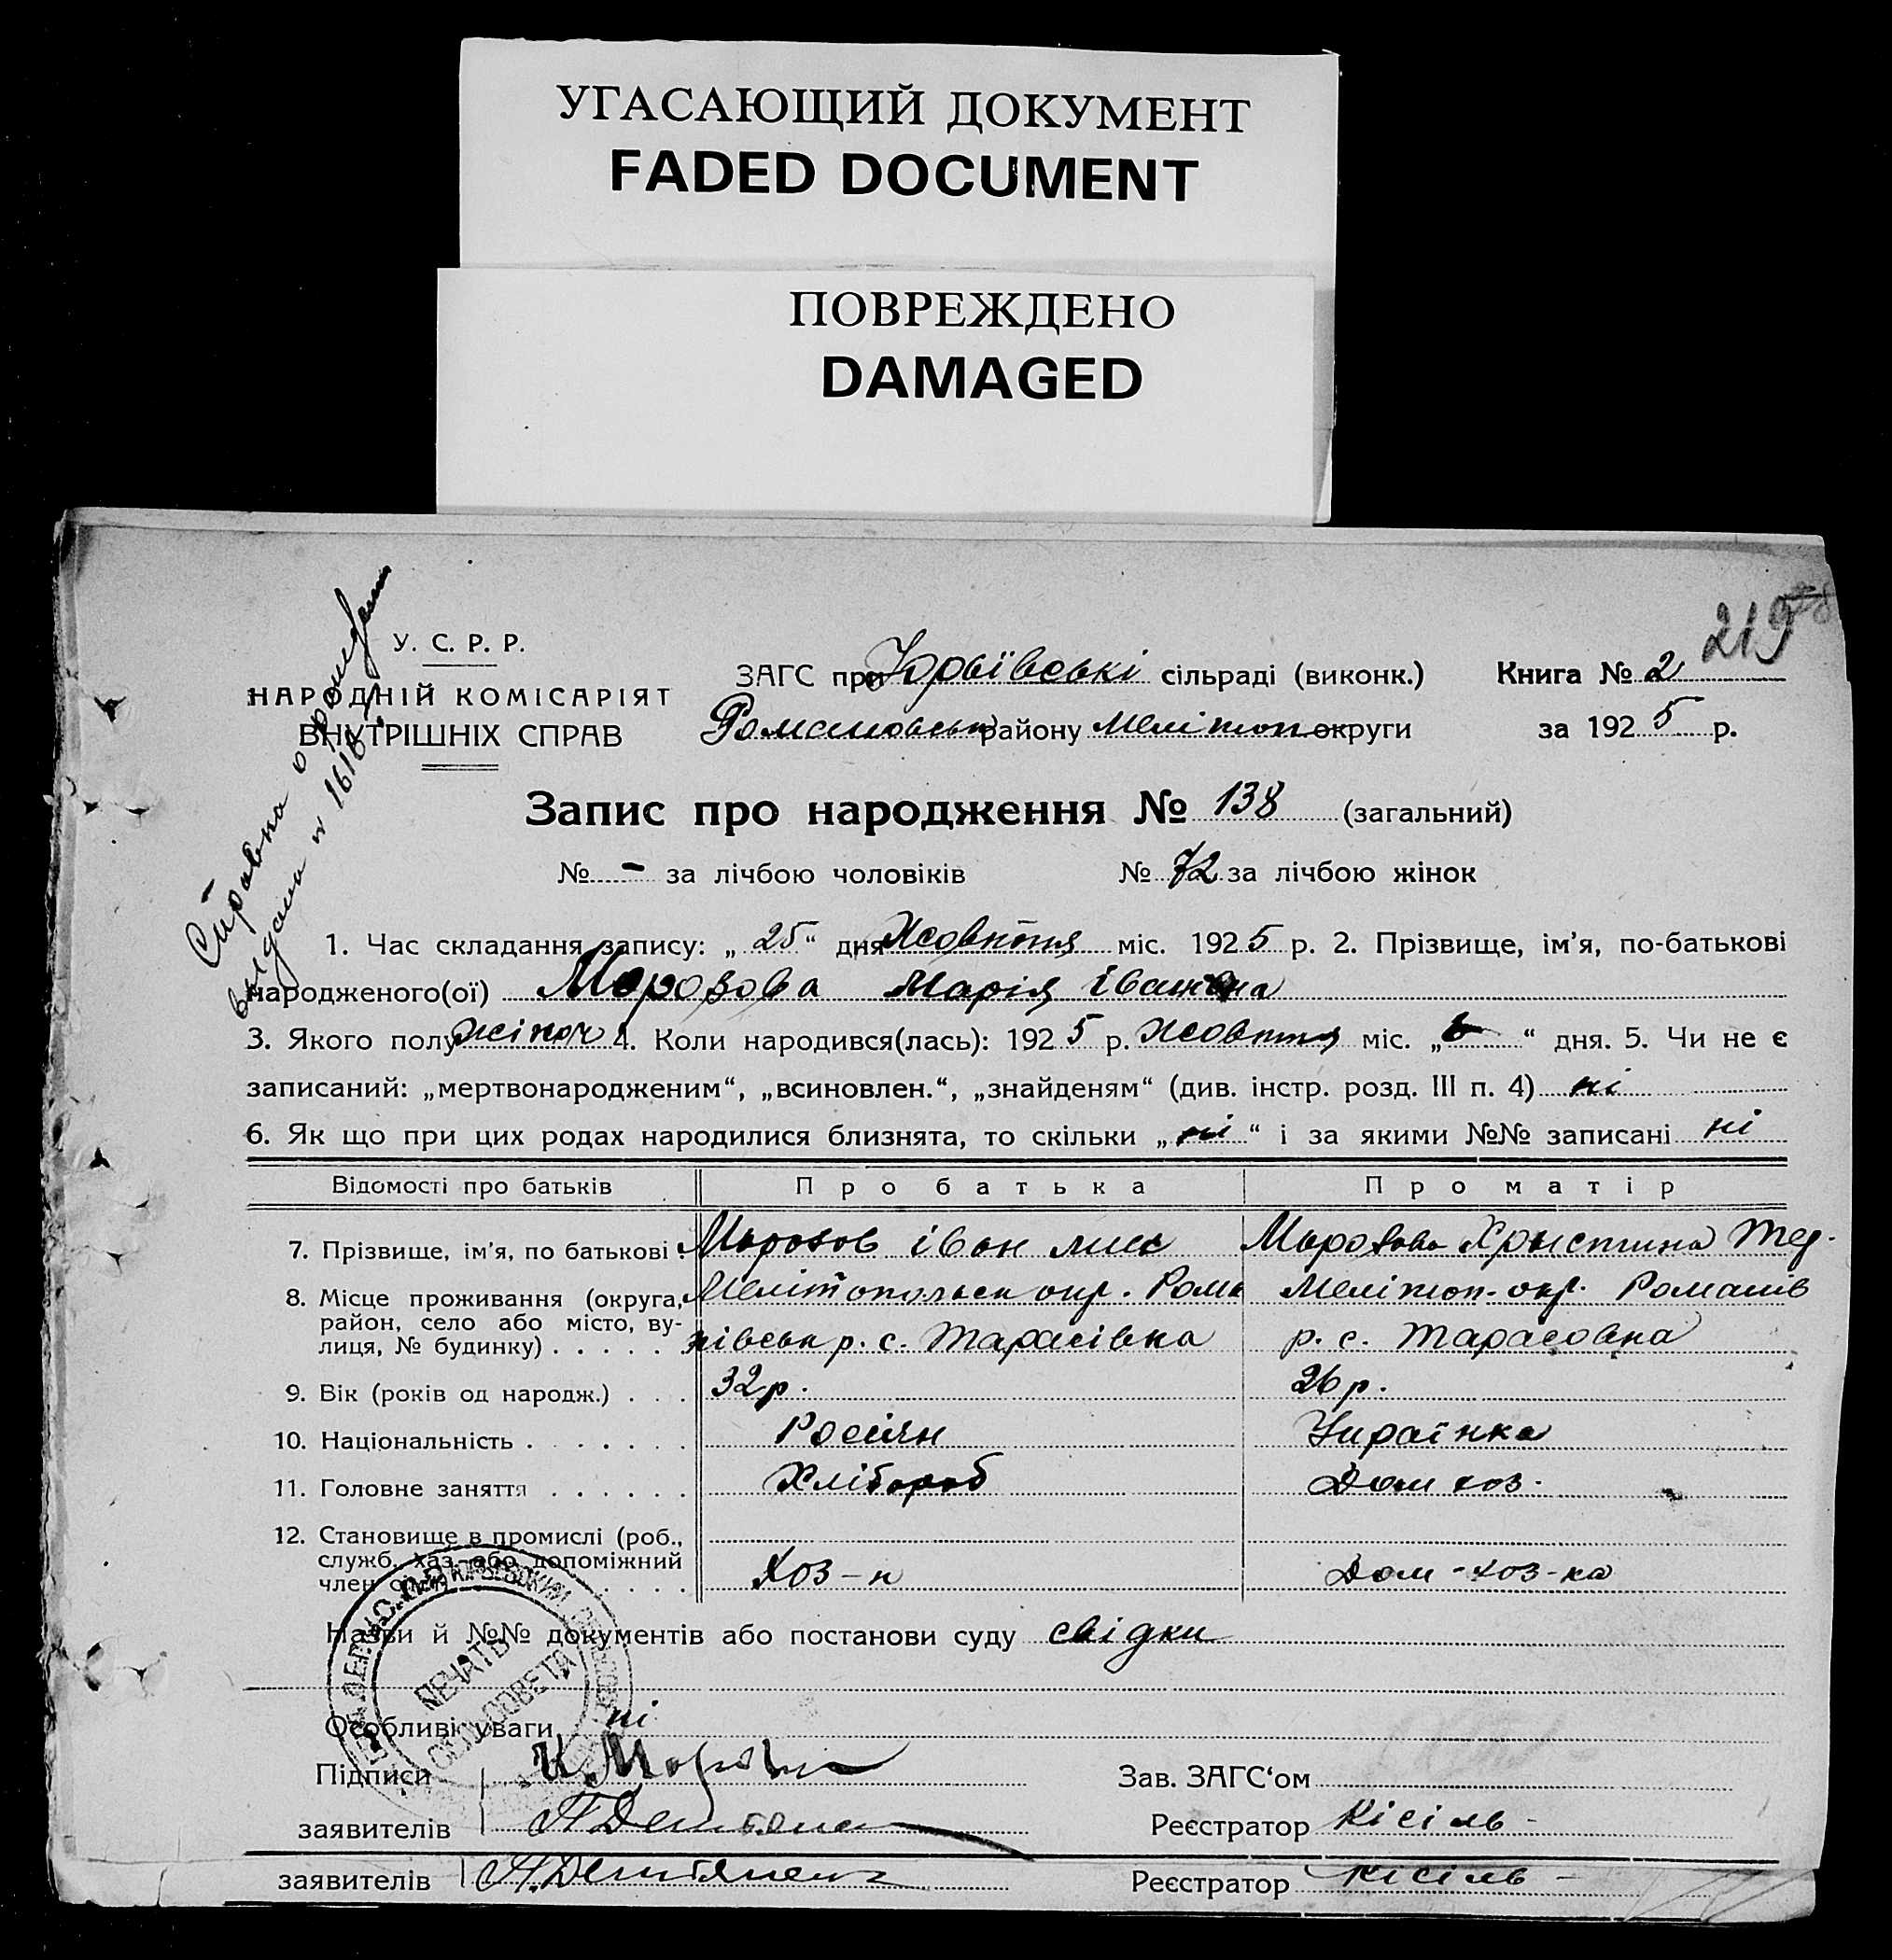 УГАСАЮЩИЙ ДОКУМЕНТ
FADED DOCUMENT
ПОВРЕЖДЕНО
DAMAGED
219
У. С. Р. Р.
НАРОДНІЙ КОМІСАРІЯТ
ВНУТРІШНІХ СПРАВ
Справка о рождении
выдана № 1618
ЗАГС при Юрьївські сільраді (виконк.) Книга № 2
Романовськ району Мелітоп округи за 1925 р.
Запис про народження № 138 (загальний)
№ - за лічбою чоловіків № 72 за лічбою жінок
1. Час складання запису: „25“ дня Жовтня міс. 1925 р. 2. Прізвище, ім'я, по-батькові
народженого(ої) Морозова Марія Іванівна
3. Якого полу жіноч 4. Коли народився(лась): 1925 р. Жовтня міс. „6“ дня. 5. Чи не є
записаний: „мертвонародженим“, „всиновлен.“, „знайденям“ (див. інстр. розд. III п. 4) ні
6. Як що при цих родах народилися близнята, то скільки „ні“ і за якими №№ записані ні
Відомості про батьків Про батька Про матір
7. Прізвище, ім'я, по батькові . Морозов Іван Мих Морозова Христина Тед.
8. Місце проживання (округа, Мелітопольськ окр. Рома Меліт оп. окр. Романів
район, село або місто, ву-
лиця, № будинку) . . . . . . нівськ р. с. Тарасівка р. с. Тарасовка
9. Вік (років од народж.) . . . 32 р. 26 р.
10. Національність . . . . . . . Росіян Украінка
11. Головне заняття . . . . . . Хлібороб Дом хоз.
12. Становище в промислі (роб.,
служб. хаз. або допоміжний
член сім'ї) . . . . . Хоз-н Дом-хоз-ка
Назви й №№ документів або постанови суду свідки
ПЕЧАТЬ
СЕЛЬСОВЕТА
Особливі уваги ні
Підписи Зав. ЗАГС‘ом
заявителів Реєстратор Кісіль
заявителів Реєстратор Кісіль